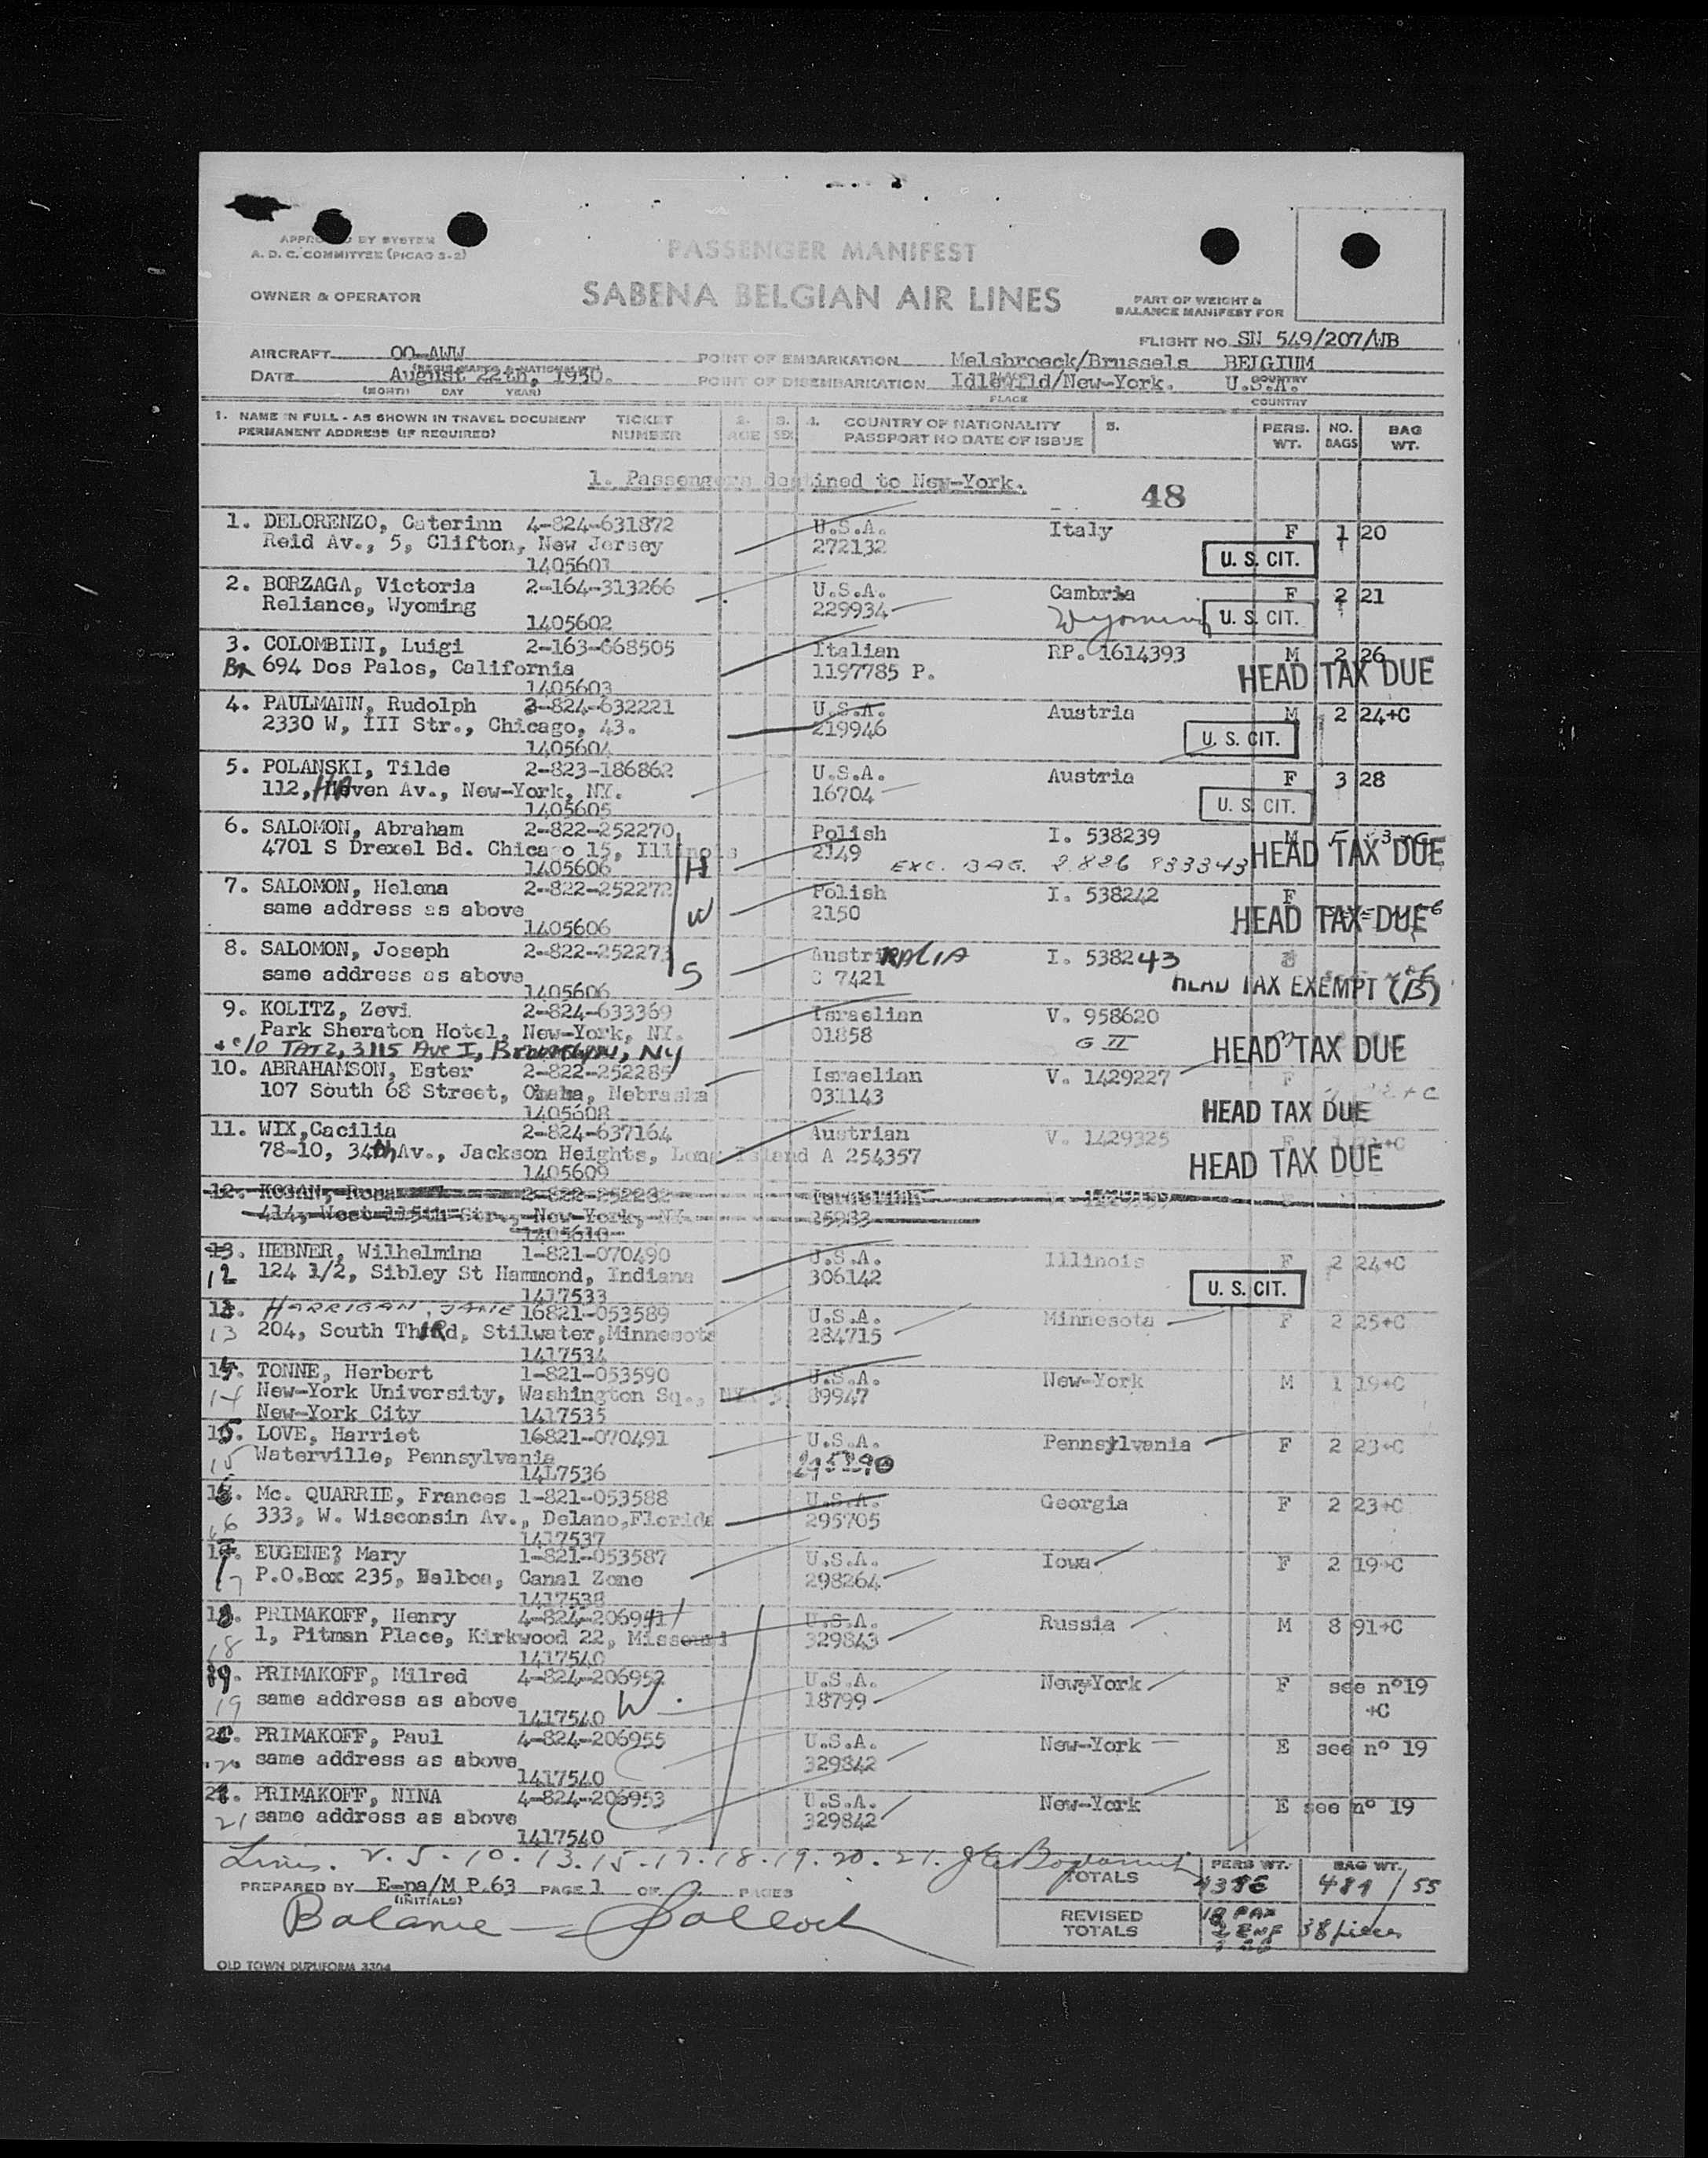 APPROVED BY SYSTEM
A. D. C. COMMITTEE (PICAO 2-2)
PASSENGER MANIFEST
OWNER & OPERATOR
SABENA BELGIAN AIR LINES
PART OF WEIGHT &
BALANCE MANIFEST FOR
FLIGHT NO. SN 549/207/WB
AIRCRAFT OO-AWW POINT OF EMBARKATION Melsbroeck/Brussels BELGIUM
DATE August 22th, 1950. POINT OF DISEMBARKATION Idlewild/New-York. U.S.A.
(MONTH) DAY YEAR) PLACE COUNTRY
1. NAME IN FULL - AS SHOWN IN TRAVEL DOCUMENT TICKET 2. 3. 4. COUNTRY OF NATIONALITY 5. PERS. NO. BAG
PERMANENT ADDRESS (IF REQUIRED) NUMBER AGE SEX PASSPORT NO DATE OF ISSUE WT. BAGS WT.
1. Passengers destined to New-York. 48
1. DELORENZO, Caterinn 4-824-631872 U.S.A. Italy F 1 20
Reid Av., 5, Clifton, New Jersey 272132 U. S. CIT.
1405601
2. BORZAGA, Victoria 2-164-313266 U.S.A. Cambria F 2 21
Reliance, Wyoming 229934 Wyoming U. S. CIT.
1405602
3. COLOMBINI, Luigi 2-163-068505 Italian RP. 1614393 M 2 26
694 Dos Palos, California 1197785 P. HEAD TAX DUE
1405603
4. PAULMANN, Rudolph 2-824-632221 U.S.A. Austria M 2 24+C
2330 W, III Str., Chicago, 43. 219946 U. S. CIT.
1405604
5. POLANSKI, Tilde 2-823-186862 U.S.A. Austria F 3 28
112, HAven Av., New-York, NY. 16704 U. S. CIT.
1405605
6. SALOMON, Abraham 2-822-252270 Polish I. 538239 M
4701 S Drexel Bd. Chicago 15, Illinois 2149 EXC. BAG. 2826 833343 HEAD TAX DUE
1405606 H
7. SALOMON, Helena 2-822-252272 Polish I. 538242 F
same address as above W 2150 HEAD TAX DUE
1405606
8. SALOMON, Joseph 2-822-252273 AustriRALIA I. 538243
same address as above S C 7421 HEAD TAX EXEMPT (B)
1405606
9. KOLITZ, Zevi 2-824-633369 Israelian V. 958620
Park Sheraton Hotel, New-York, NY. 01858 G II HEAD TAX DUE
c/o TATZ, 3115 Ave I, Brooklyn, NY
10. ABRAHAMSON, Ester 2-822-252285 Israelian V. 1429227 F
107 South 68 Street, Omaha, Nebraska 031143 HEAD TAX DUE
1405608
11. WIX,Cacilia 2-824-637164 Austrian V. 1429325 F
78-10, 34th Av., Jackson Heights, Long Island A 254357 HEAD TAX DUE
1405609
12. KOGAN, Rosa 2-822-252282
414, West 115th Str., New-York, NY 25983
1405610
13. HEBNER, Wilhelmina 1-821-070490 U.S.A. Illinois F 2 24+C
12 124 1/2, Sibley St Hammond, Indiana 306142 U. S. CIT.
1417533
HARRIGAN, JANE 16821-053589 U.S.A. Minnesota F 2 25+C
13 204, South ThIRd, Stilwater,Minnesota 284715
1417534
TONNE, Herbert 1-821-053590 U.S.A. New-York M 1 19+C
14 New-York University, Washington Sq., NY. 3. 89947
New-York City 1417535
LOVE, Harriet 16821-070491 U.S.A. Pennsylvania F 2 23+C
15 Waterville, Pennsylvania
1417536
Mc. QUARRIE, Frances 1-821-053588 U.S.A. Georgia F 2 23+C
16 333, W. Wisconsin Av., Delano,Florida 295705
1417537
EUGENE? Mary 1-821-053587 U.S.A. Iowa F 2 19+C
17 P.O.Box 235, Balboa, Canal Zone 298264
1417538
PRIMAKOFF, Henry 4-824-206941 U.S.A. Russia M 8 91+C
18 1, Pitman Place, Kirkwood 22, Missouri 329843
1417540
19. PRIMAKOFF, Milred 4-824-206952 U.S.A. New-York F see n°19
19 same address as above W. 18799 +C
1417540
PRIMAKOFF, Paul 4-824-206955 U.S.A. New-York E see n° 19
20 same address as above 329842
1417540
PRIMAKOFF, NINA 4-824-206953 U.S.A. New-York E see n° 19
21 same address as above 329842
1417540
Lines. 2. 5. 10. 13. 15. 17. 18. 19. 20. 21.
PERS WT. BAG WT.
PREPARED BY E-pa/M P.63 PAGE 1 OF PAGES TOTALS 481/55
(INITIALS)
Balance
REVISED TOTALS 18 PAX 38 pieces
OLD TOWN DUPLIFORM 3304